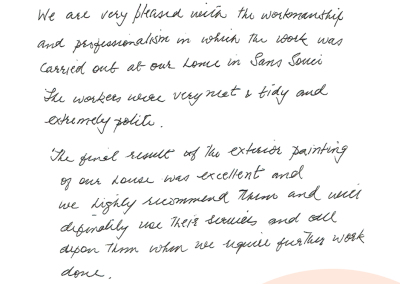 We are very pleased with the workmanship
and professionalism in which the work was
carried out at our home in Sans Souci
The workers were very neat & tidy and
extremely polite.
The final result of the exterior painting
of our house was excellent and
we highly recommend them and will
definitely use their services and call
upon them when we require further work
done.